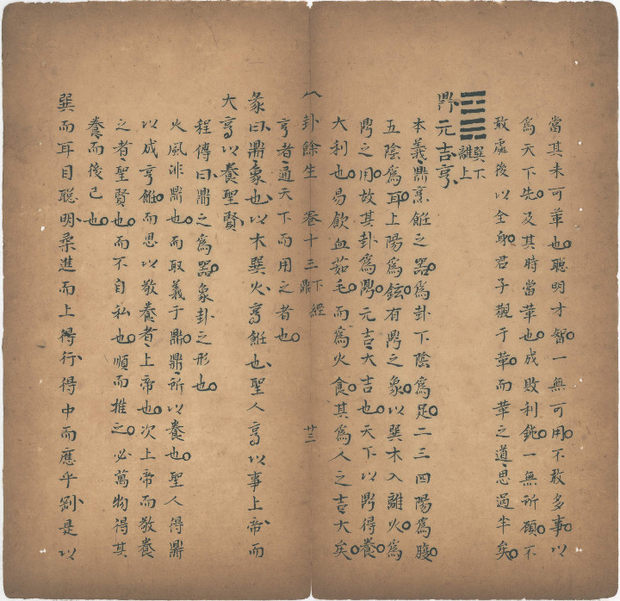 當其未可革也聰明才智一無可用不敢多事以
為天下先及其時當革也成敗利鈍一無所顧不
敢處後以全身君子觀于革而革之道思過半矣
䷱
巽下
離上
鼎元吉亨
本義鼎烹飪之器為卦下陰為足二三四陽為腹
五陰為耳上陽為鉉有鼎之象以巽木入離火為
鼎之用故其卦為鼎元吉大吉也天下以鼎得養
大利也易飲血茹毛而為火食其為人之吉大矣
八卦餘生 卷十三 下經 鼎 廿三
亨者通天下而用之者也
彖曰鼎象也以木巽火亨飪也聖人亨以事上帝而
大亨以養聖賢
程傳曰鼎之為器象卦之形也
火風非鼎也而取義于鼎鼎所以養也聖人得鼎
以成亨飪而思以敬養者上帝也次上帝而敬養
之者聖賢也而不自私也順而推之必萬物得其
養而後已也
巽而耳目聰明柔進而上得行得中而應乎剛是以